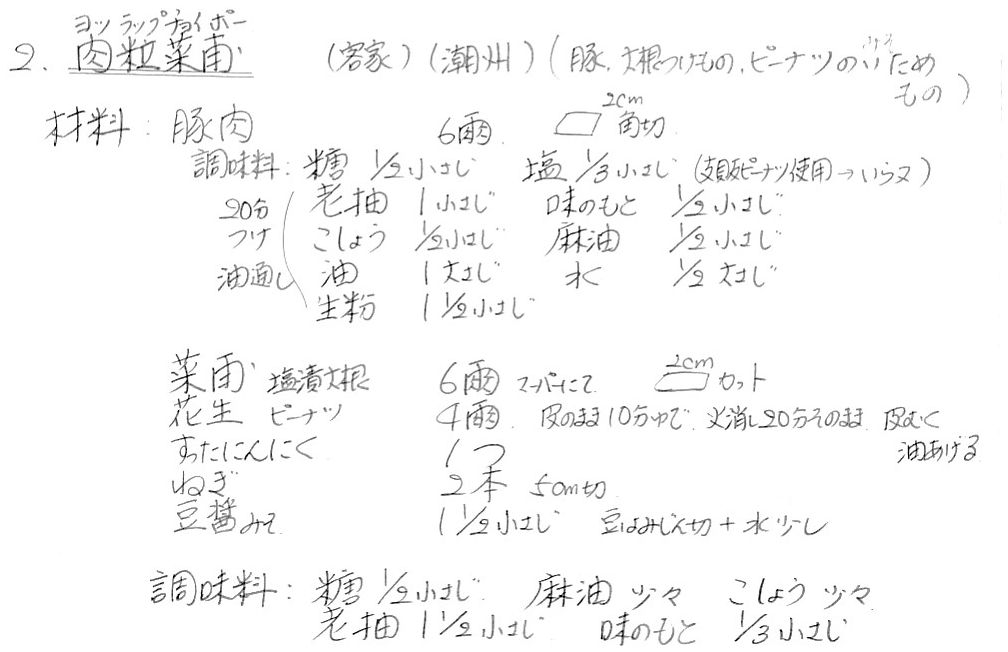 ヨッ ラップ チョイ ポー
2. 肉粒菜甫 (客家) (潮州) (豚、大根つけもの、ピーナツのみそいためもの)
材料 : 豚肉 6両 2cm 角切
調味料 : 糖 1/2小さじ 塩 1/3小さじ (支販ピーナツ使用→いらヌ)
20分 老抽 1小さじ 味のもと 1/2小さじ
つけ こしょう 1/2小さじ 麻油 1/2小さじ
油通し 油 1大さじ 水 1/2大さじ
生粉 1 1/2小さじ
菜甫 塩漬大根 6両 スーパーにて 2cm カット
花生 ピーナツ 4両 皮のまま10分ゆで 火消し20分そのまま 皮むく
油あげる
すったにんにく 1つ
ねぎ 2本 5cm切
豆醤みそ 1 1/2小さじ 豆はみじん切+水少し
調味料 : 糖 1/2小さじ 麻油 少々 こしょう 少々
老抽 1 1/2小さじ 味のもと 1/3小さじ